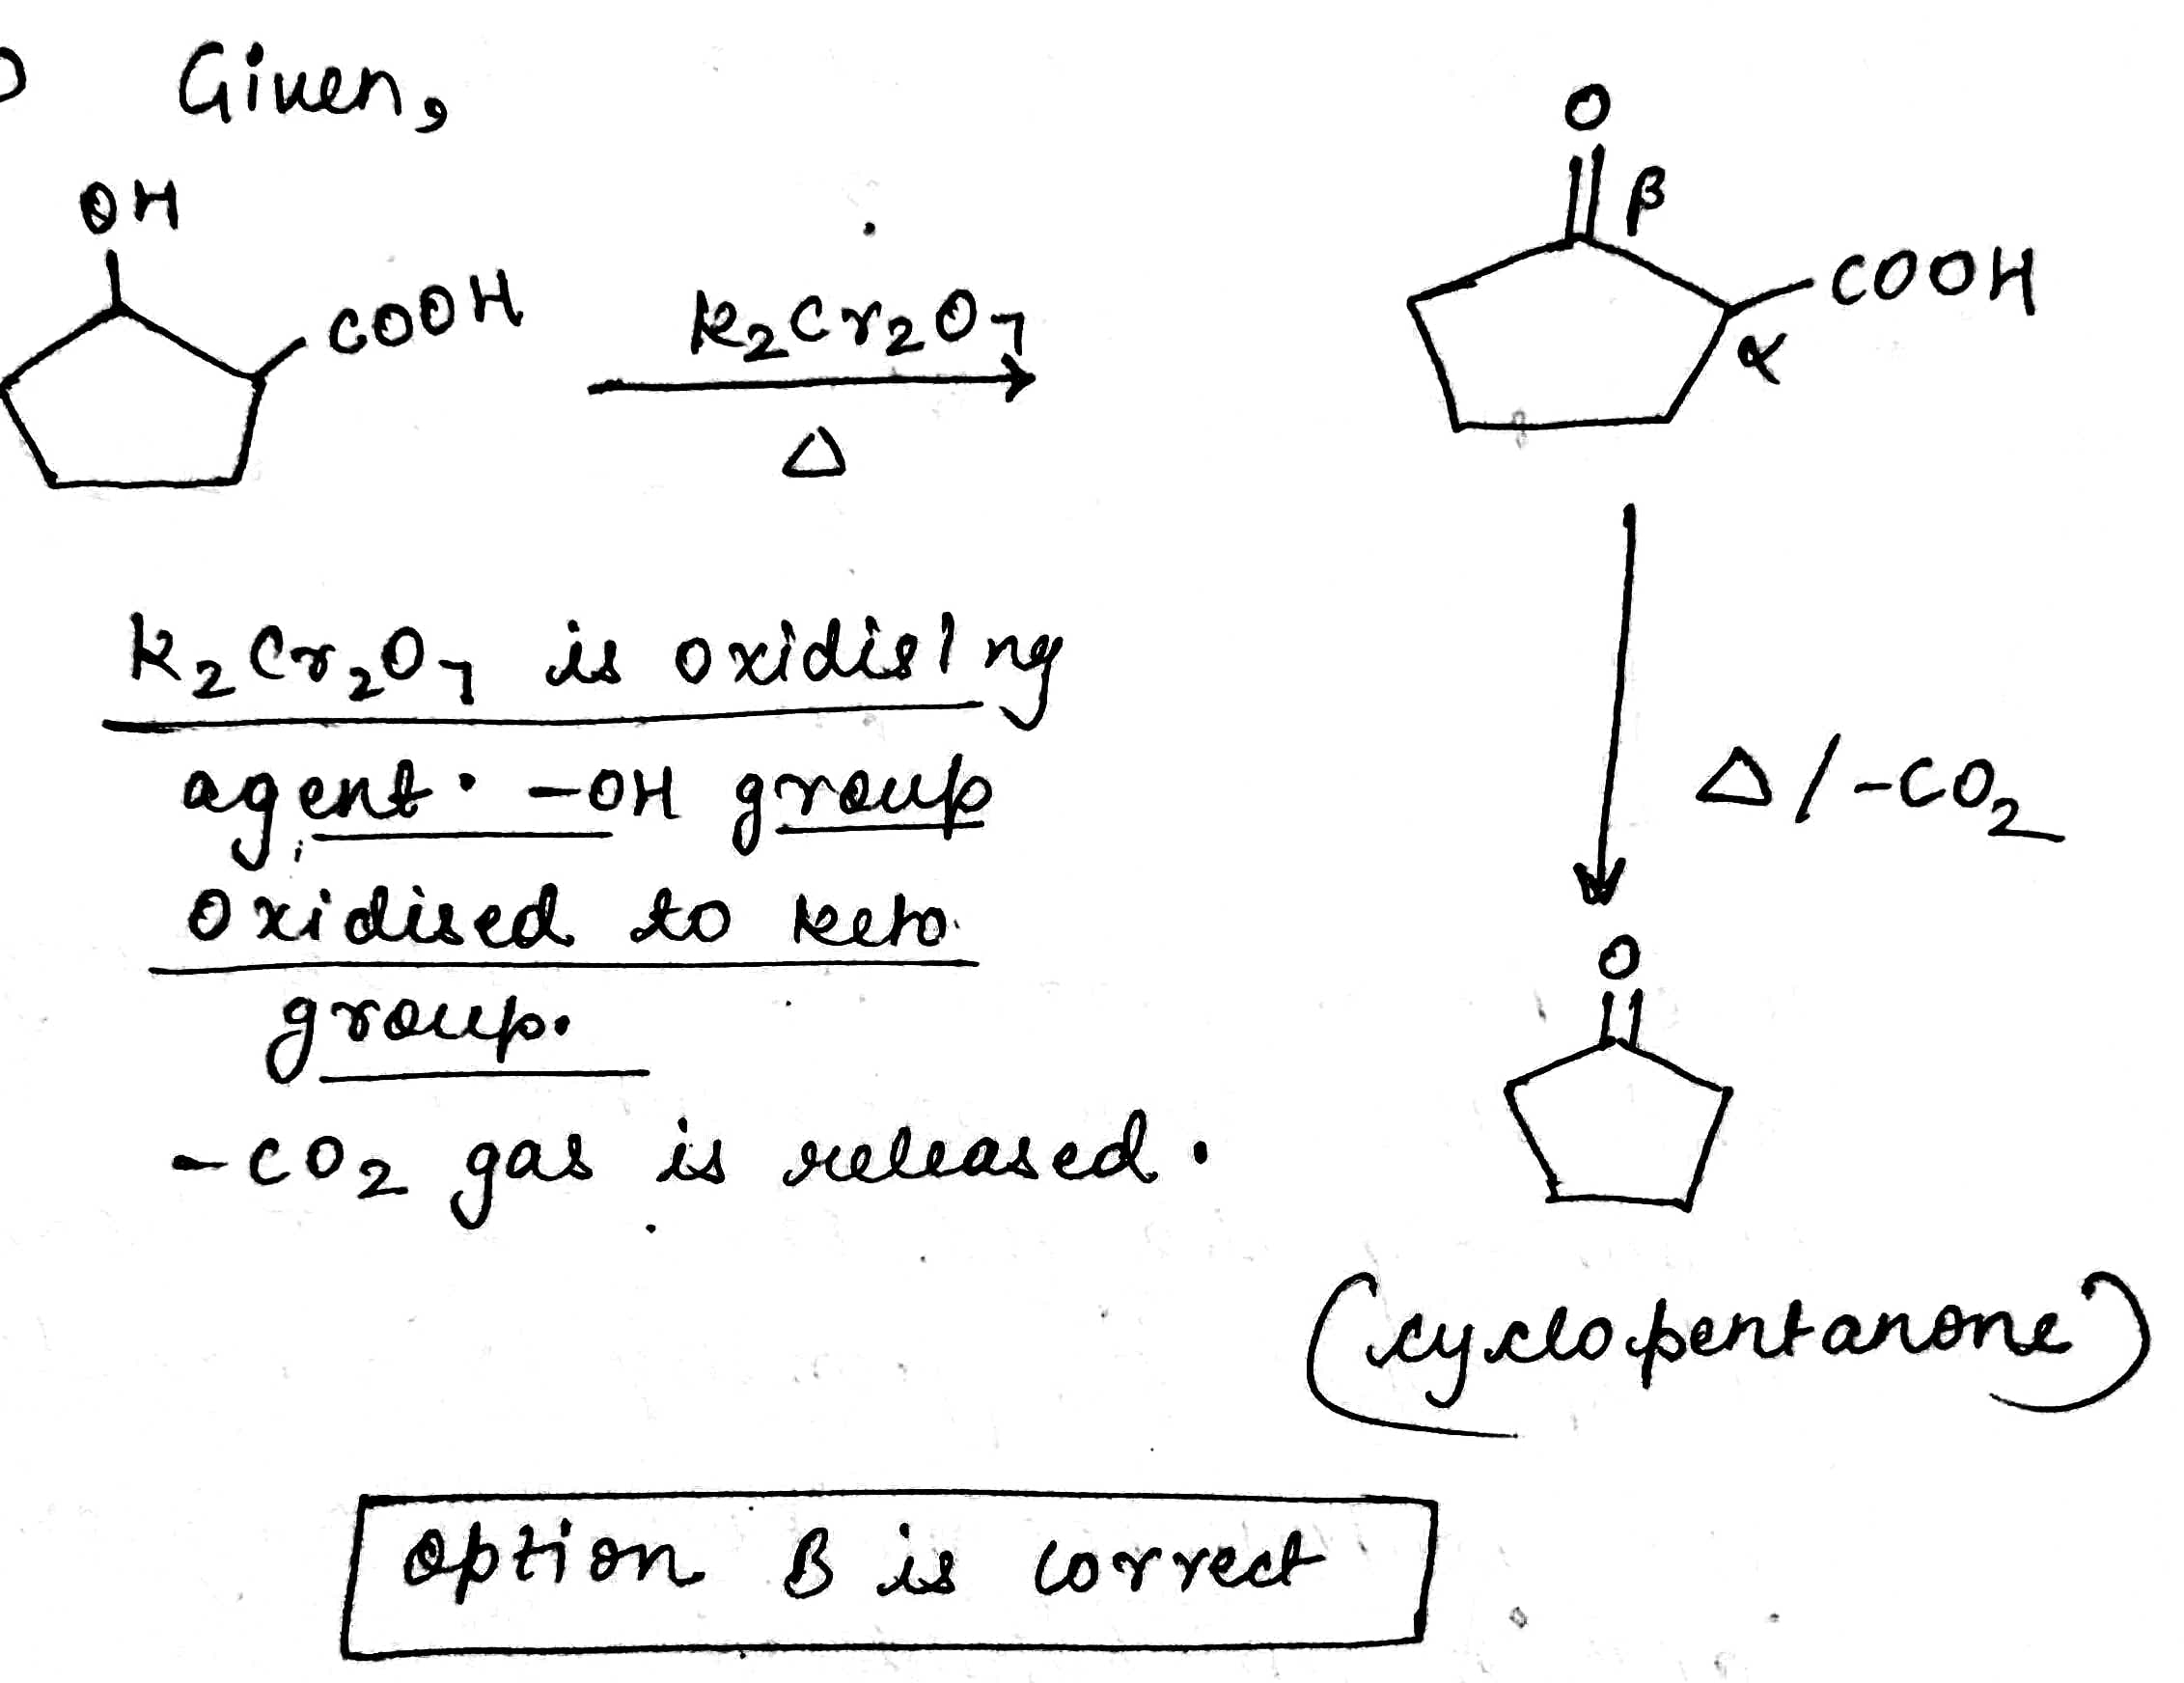 Given,
OH
COOH
K₂Cr₂O₇
Δ
O
β
COOH
α
K₂Cr₂O₇ is oxidising
agent. -OH group
oxidised to keto
group.
-CO₂ gas is released.
Δ/-CO₂
O
(cyclopentanone)
option B is correct